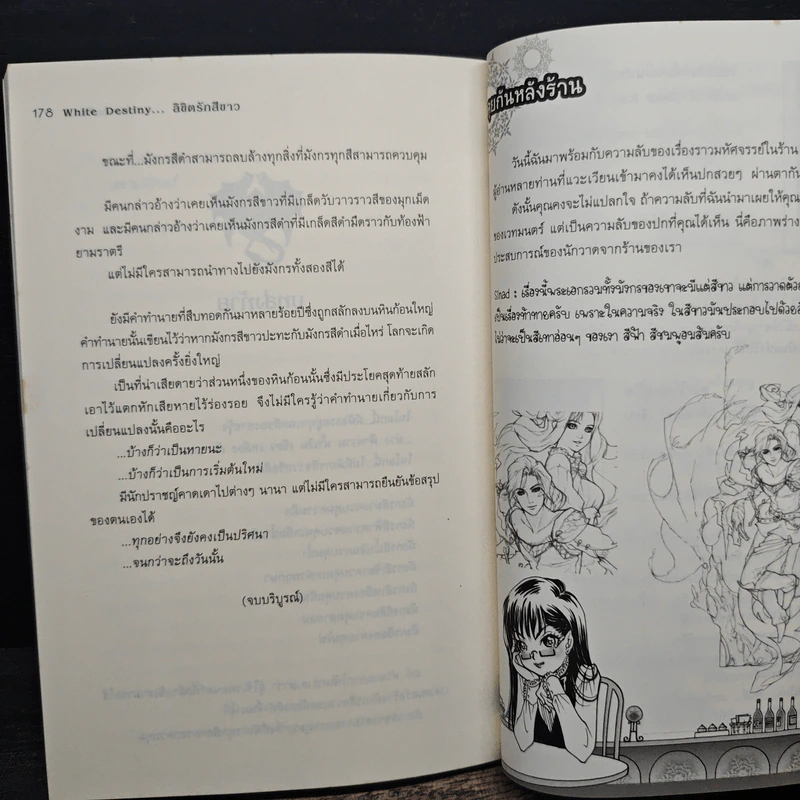 178 White Destiny... ลิขิตรักสีขาว
ขณะที่...มังกรสีดำสามารถลบล้างทุกสิ่งที่มังกรทุกสีสามารถควบคุม
มีคนกล่าวอ้างว่าเคยเห็นมังกรสีขาวที่มีเกล็ดวับวาวราวสีของมุกเม็ด
งาม และมีคนกล่าวอ้างว่าเคยเห็นมังกรสีดำที่มีเกล็ดสีดำมืดราวกับท้องฟ้า
ยามราตรี
แต่ไม่มีใครสามารถนำทางไปยังมังกรทั้งสองสีได้
ยังมีคำทำนายที่สืบทอดกันมาหลายร้อยปีซึ่งถูกสลักลงบนหินก้อนใหญ่
คำทำนายนั้นเขียนไว้ว่าหากมังกรสีขาวปะทะกับมังกรสีดำเมื่อไหร่ โลกจะเกิด
การเปลี่ยนแปลงครั้งยิ่งใหญ่
เป็นที่น่าเสียดายว่าส่วนหนึ่งของหินก้อนนั้นซึ่งมีประโยคสุดท้ายสลัก
เอาไว้แตกหักเสียหายไร้ร่องรอย จึงไม่มีใครรู้ว่าคำทำนายเกี่ยวกับการ
เปลี่ยนแปลงนั้นคืออะไร
...บ้างก็ว่าเป็นหายนะ
...บ้างก็ว่าเป็นการเริ่มต้นใหม่
มีนักปราชญ์คาดเดาไปต่างๆ นานา แต่ไม่มีใครสามารถยืนยันข้อสรุป
ของตนเองได้
...ทุกอย่างจึงยังคงเป็นปริศนา
...จนกว่าจะถึงวันนั้น
(จบบริบูรณ์)
กันหลังร้าน
วันนี้ฉันมาพร้อมกับความลับของเรื่องราวมหัศจรรย์ในร้าน
ผู้อ่านหลายท่านที่แวะเวียนเข้ามาคงได้เห็นปกสวยๆ ผ่านตากัน
ดังนั้นคุณคงจะไม่แปลกใจ ถ้าความลับที่ฉันนำมาเผยให้คุณ
ของเวทมนตร์ แต่เป็นความลับของปกที่คุณได้เห็น นี่คือภาพร่าง
ประสบการณ์ของนักวาดจากร้านของเรา
Sinad : เรื่องนี้พระเอกรวมทั้งมังกรของเขาจะมีแต่สีขาว แต่การวาดตัว
เป็นเรื่องท้าทายครับ เพราะในความจริง ในสีขาวมันประกอบไปด้วย
ไม่ว่าจะเป็นสีเทาอ่อนๆ ของเงา สีฟ้า สีชมพูอมส้มครับ